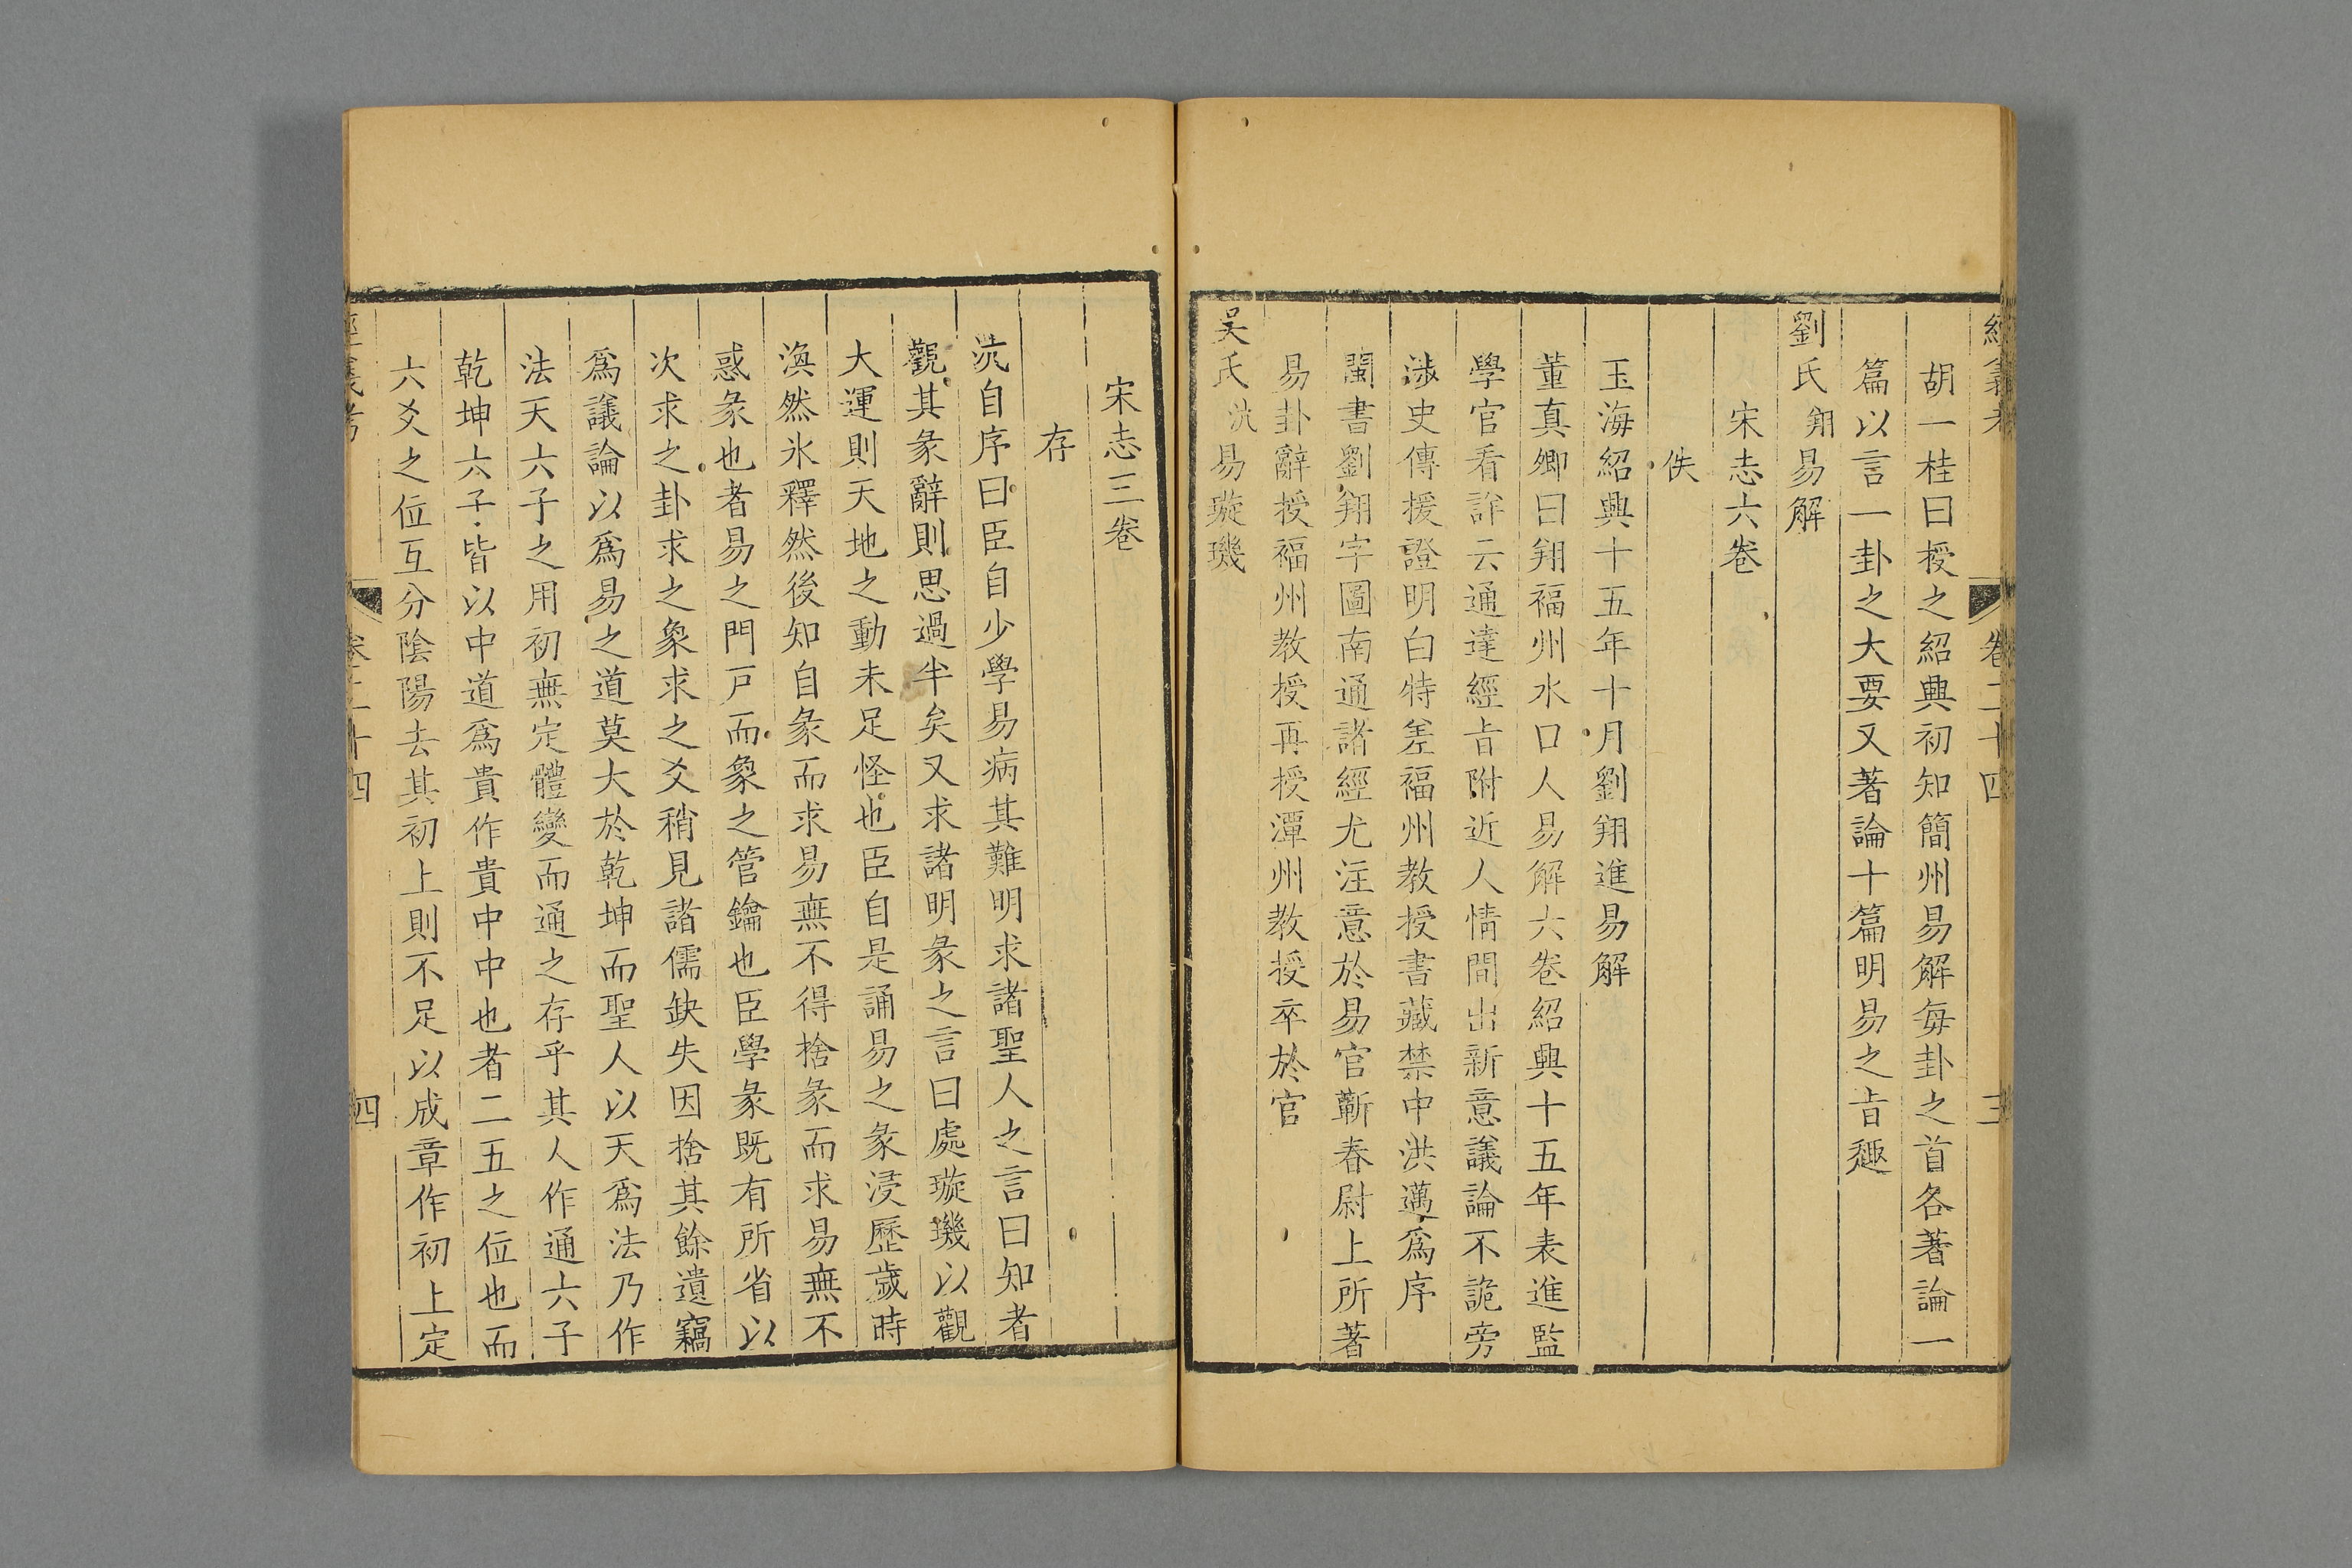 經義考 卷二十四 三
胡一桂曰授之紹興初知簡州易解每卦之首各著論一
篇以言一卦之大要又著論十篇明易之旨趣
劉氏翔易解
宋志六卷
佚
玉海紹興十五年十月劉翔進易解
董真卿曰翔福州水口人易解六卷紹興十五年表進監
學官看詳云通達經旨附近人情間出新意議論不詭旁
涉史傳援證明白特差福州教授書藏禁中洪邁爲序
閩書劉翔字圖南通諸經尤注意於易官蘄春尉上所著
易卦辭授福州教授再授潭州教授卒於官
吳氏沆易璇璣
宋志三卷
存
沆自序曰臣自少學易病其難明求諸聖人之言曰知者
觀其彖辭則思過半矣又求諸明彖之言曰處璇璣以觀
大運則天地之動未足怪也臣自是誦易之彖浸歷歲時
渙然氷釋然後知自彖而求易無不得捨彖而求易無不
惑彖也者易之門戸而象之管鑰也臣學彖既有所省以
次求之卦求之象求之爻稍見諸儒缺失因捨其餘遺竊
爲議論以爲易之道莫大於乾坤而聖人以天爲法乃作
法天六子之用初無定體變而通之存乎其人作通六子
乾坤六子皆以中道爲貴作貴中中也者二五之位也而
六爻之位互分陰陽去其初上則不足以成章作初上定
經義考 卷二十四 四